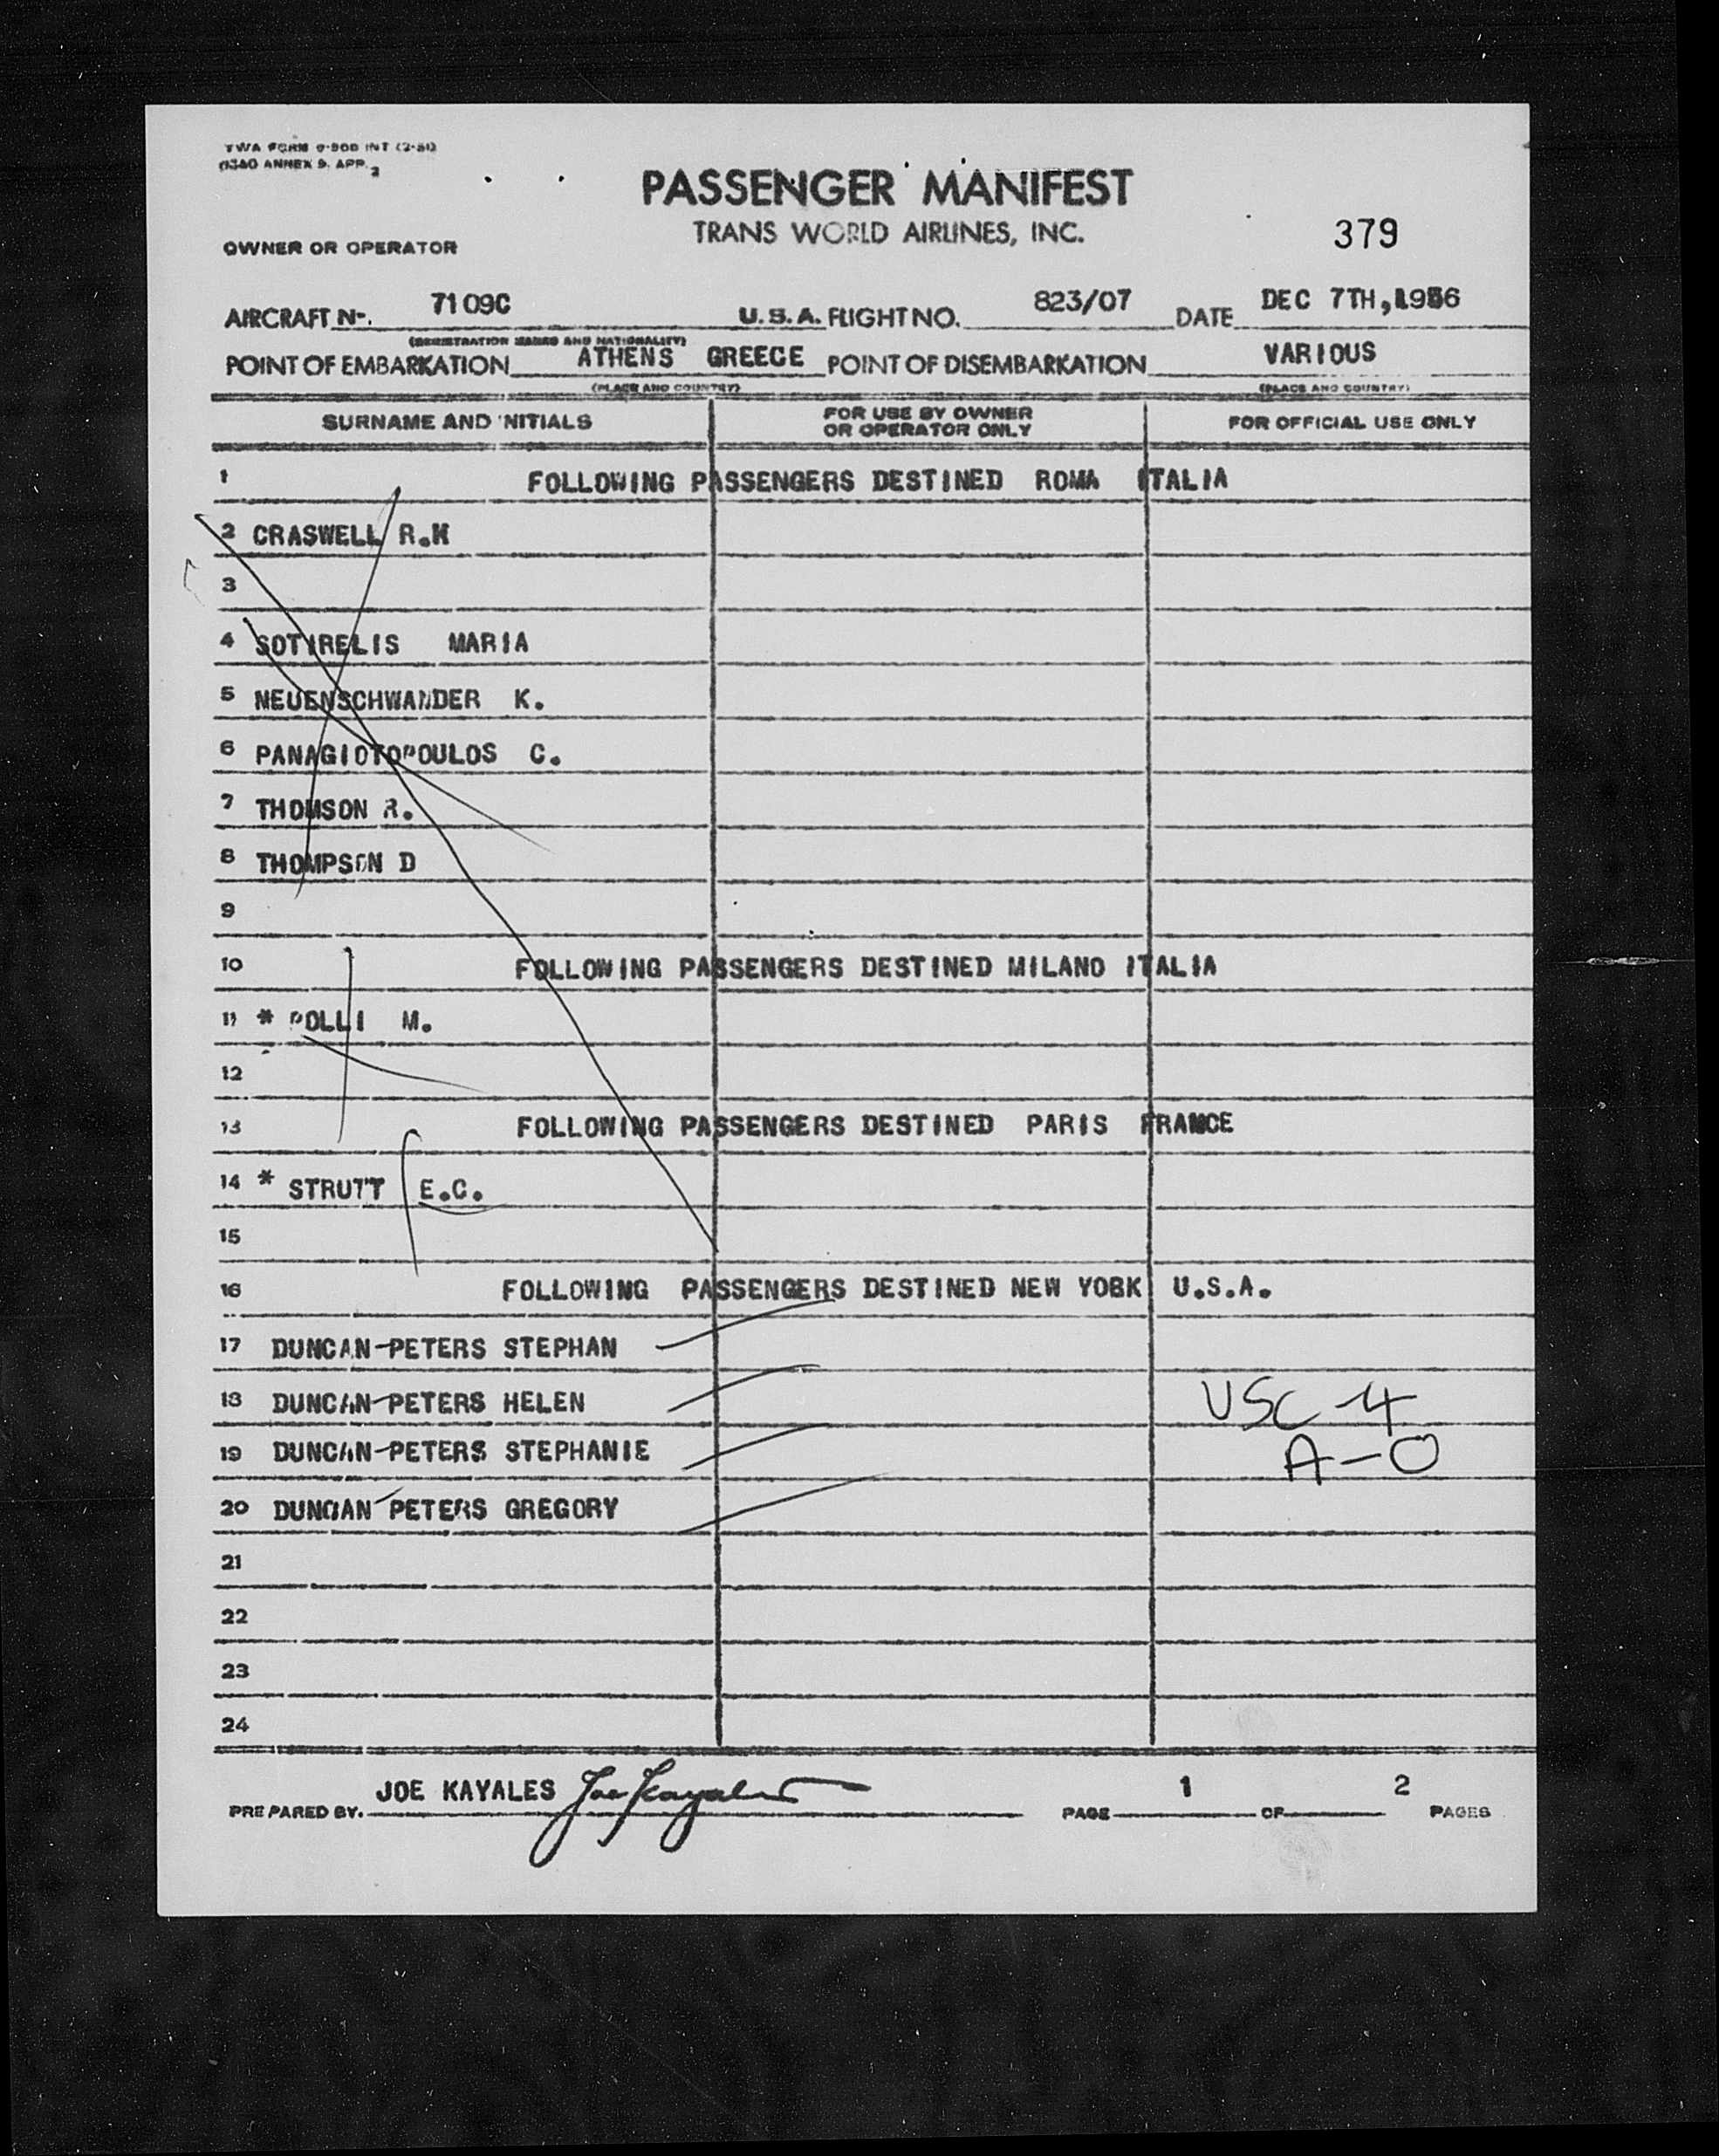 TWA FORM 0-500 INT (2-51)
ICAO ANNEX 9. APP. 2
PASSENGER MANIFEST
TRANS WORLD AIRLINES, INC.
379
OWNER OR OPERATOR
AIRCRAFT No. 7109C U.S.A. FLIGHT NO. 823/07 DATE DEC 7TH, 1956
(REGISTRATION MARKS AND NATIONALITY)
POINT OF EMBARKATION ATHENS GREECE POINT OF DISEMBARKATION VARIOUS
(PLACE AND COUNTRY) (PLACE AND COUNTRY)
SURNAME AND INITIALS FOR USE BY OWNER OR OPERATOR ONLY FOR OFFICIAL USE ONLY
1 FOLLOWING PASSENGERS DESTINED ROMA ITALIA
2 CRASWELL R.H
3
4 SOTIRELIS MARIA
5 NEUENSCHWANDER K.
6 PANAGIOTOPOULOS C.
7 THOMSON R.
8 THOMPSON D
9
10 FOLLOWING PASSENGERS DESTINED MILANO ITALIA
11 * POLLI M.
12
13 FOLLOWING PASSENGERS DESTINED PARIS FRANCE
14 * STRUTT E.C.
15
16 FOLLOWING PASSENGERS DESTINED NEW YORK U.S.A.
17 DUNCAN-PETERS STEPHAN
18 DUNCAN-PETERS HELEN USC-4
19 DUNCAN-PETERS STEPHANIE A-0
20 DUNCAN PETERS GREGORY
21
22
23
24
PREPARED BY. JOE KAYALES Joe Kayales PAGE 1 OF 2 PAGES